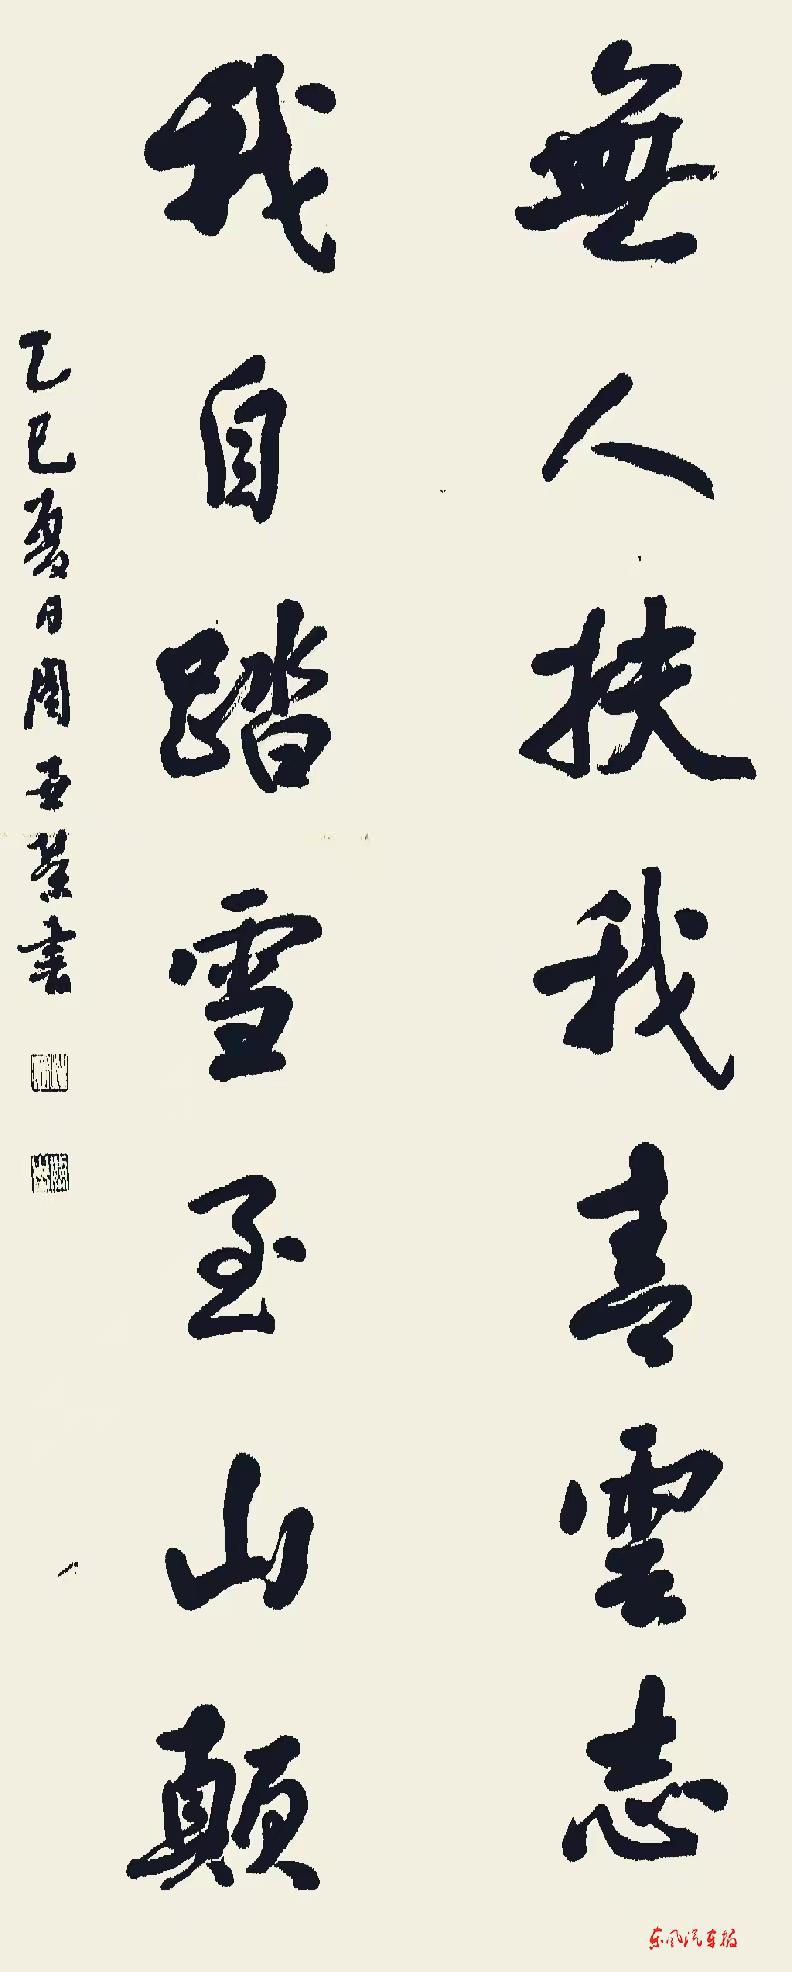 無人扶我青雲志
我自踏雪至山顛
乙巳夏日周亚荣書
东风汽车报